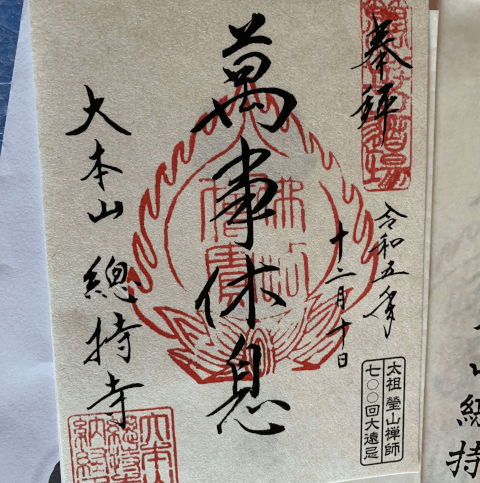 奉拝
令和五年
十二月十日
萬事休息
佛法
僧寶
大本山 總持寺
太祖 瑩山禅師
七〇〇回大遠忌
大本山
總持寺